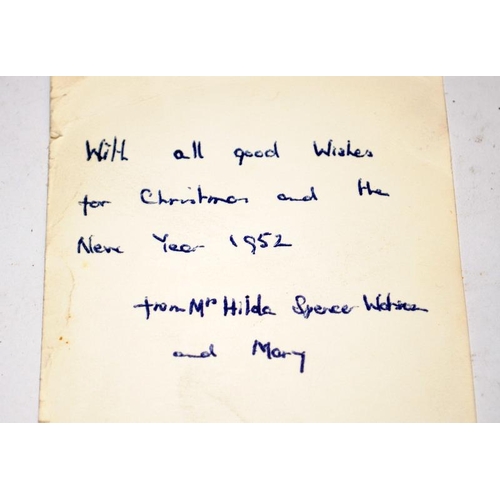 With all good Wishes
for Christmas and the
New Year 1952
from Mrs Hilda Spencer Watson
and Mary